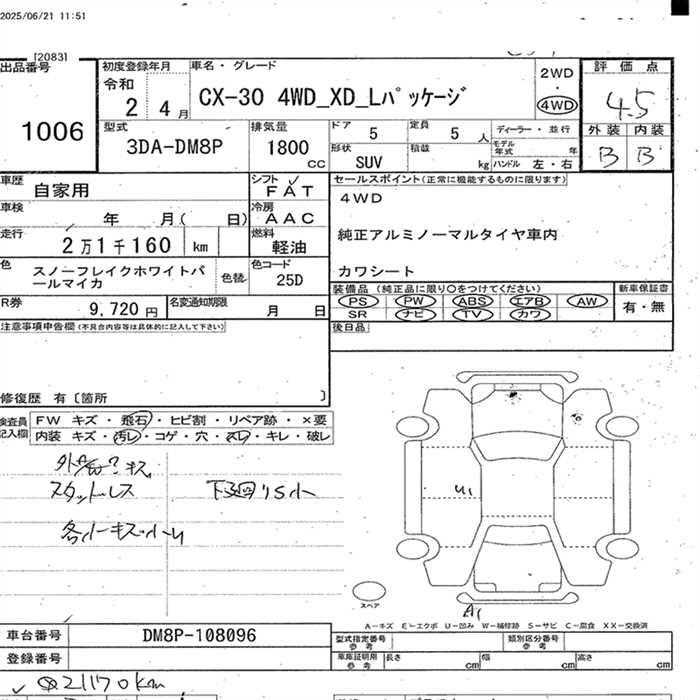 2025/06/21 11:51
[2083]
出品番号
1006
初度登録年月
令和
2 年 4 月
車名・グレード
CX-30 4WD_XD_Lパッケージ
2WD
4WD
評価点
4.5
外装 内装
B B
型式
3DA-DM8P
排気量
1800 cc
ドア 5
定員 5 人
形状 SUV
積載 kg
ディーラー・並行
モデル年式 年
ハンドル 左・右
車歴 自家用
シフト FAT
車検 年 月( 日)
冷房 AAC
走行 2万1千160 km
燃料 軽油
色 スノーフレイクホワイトパールマイカ
色替
色コード 25D
R券 9,720 円
名変通知期限 月 日
セールスポイント(正常に機能するものに限ります)
4WD
純正アルミノーマルタイヤ車内
カワシート
装備品 (純正品に限り○をつけてください)
PS PW ABS エアB AW
SR ナビ TV カワ
新車保証書
有・無
後日品
注意事項申告欄(不具合内容等は具体的に記入して下さい)
修復歴 有〔箇所 〕
検査員記入欄
FW キズ・飛石・ヒビ割・リペア跡・×要
内装 キズ・汚レ・コゲ・穴・スレ・キレ・破レ
スタットレス
下廻りS小
U1
A1
スペア
A−キズ E−エクボ U−凹み W−補修跡 S−サビ C−腐食 XX−交換済
車台番号 DM8P-108096
登録番号
型式指定番号 参考
類別区分番号 参考
車庫証明用 参考
長さ cm 幅 cm 高さ cm
21170km